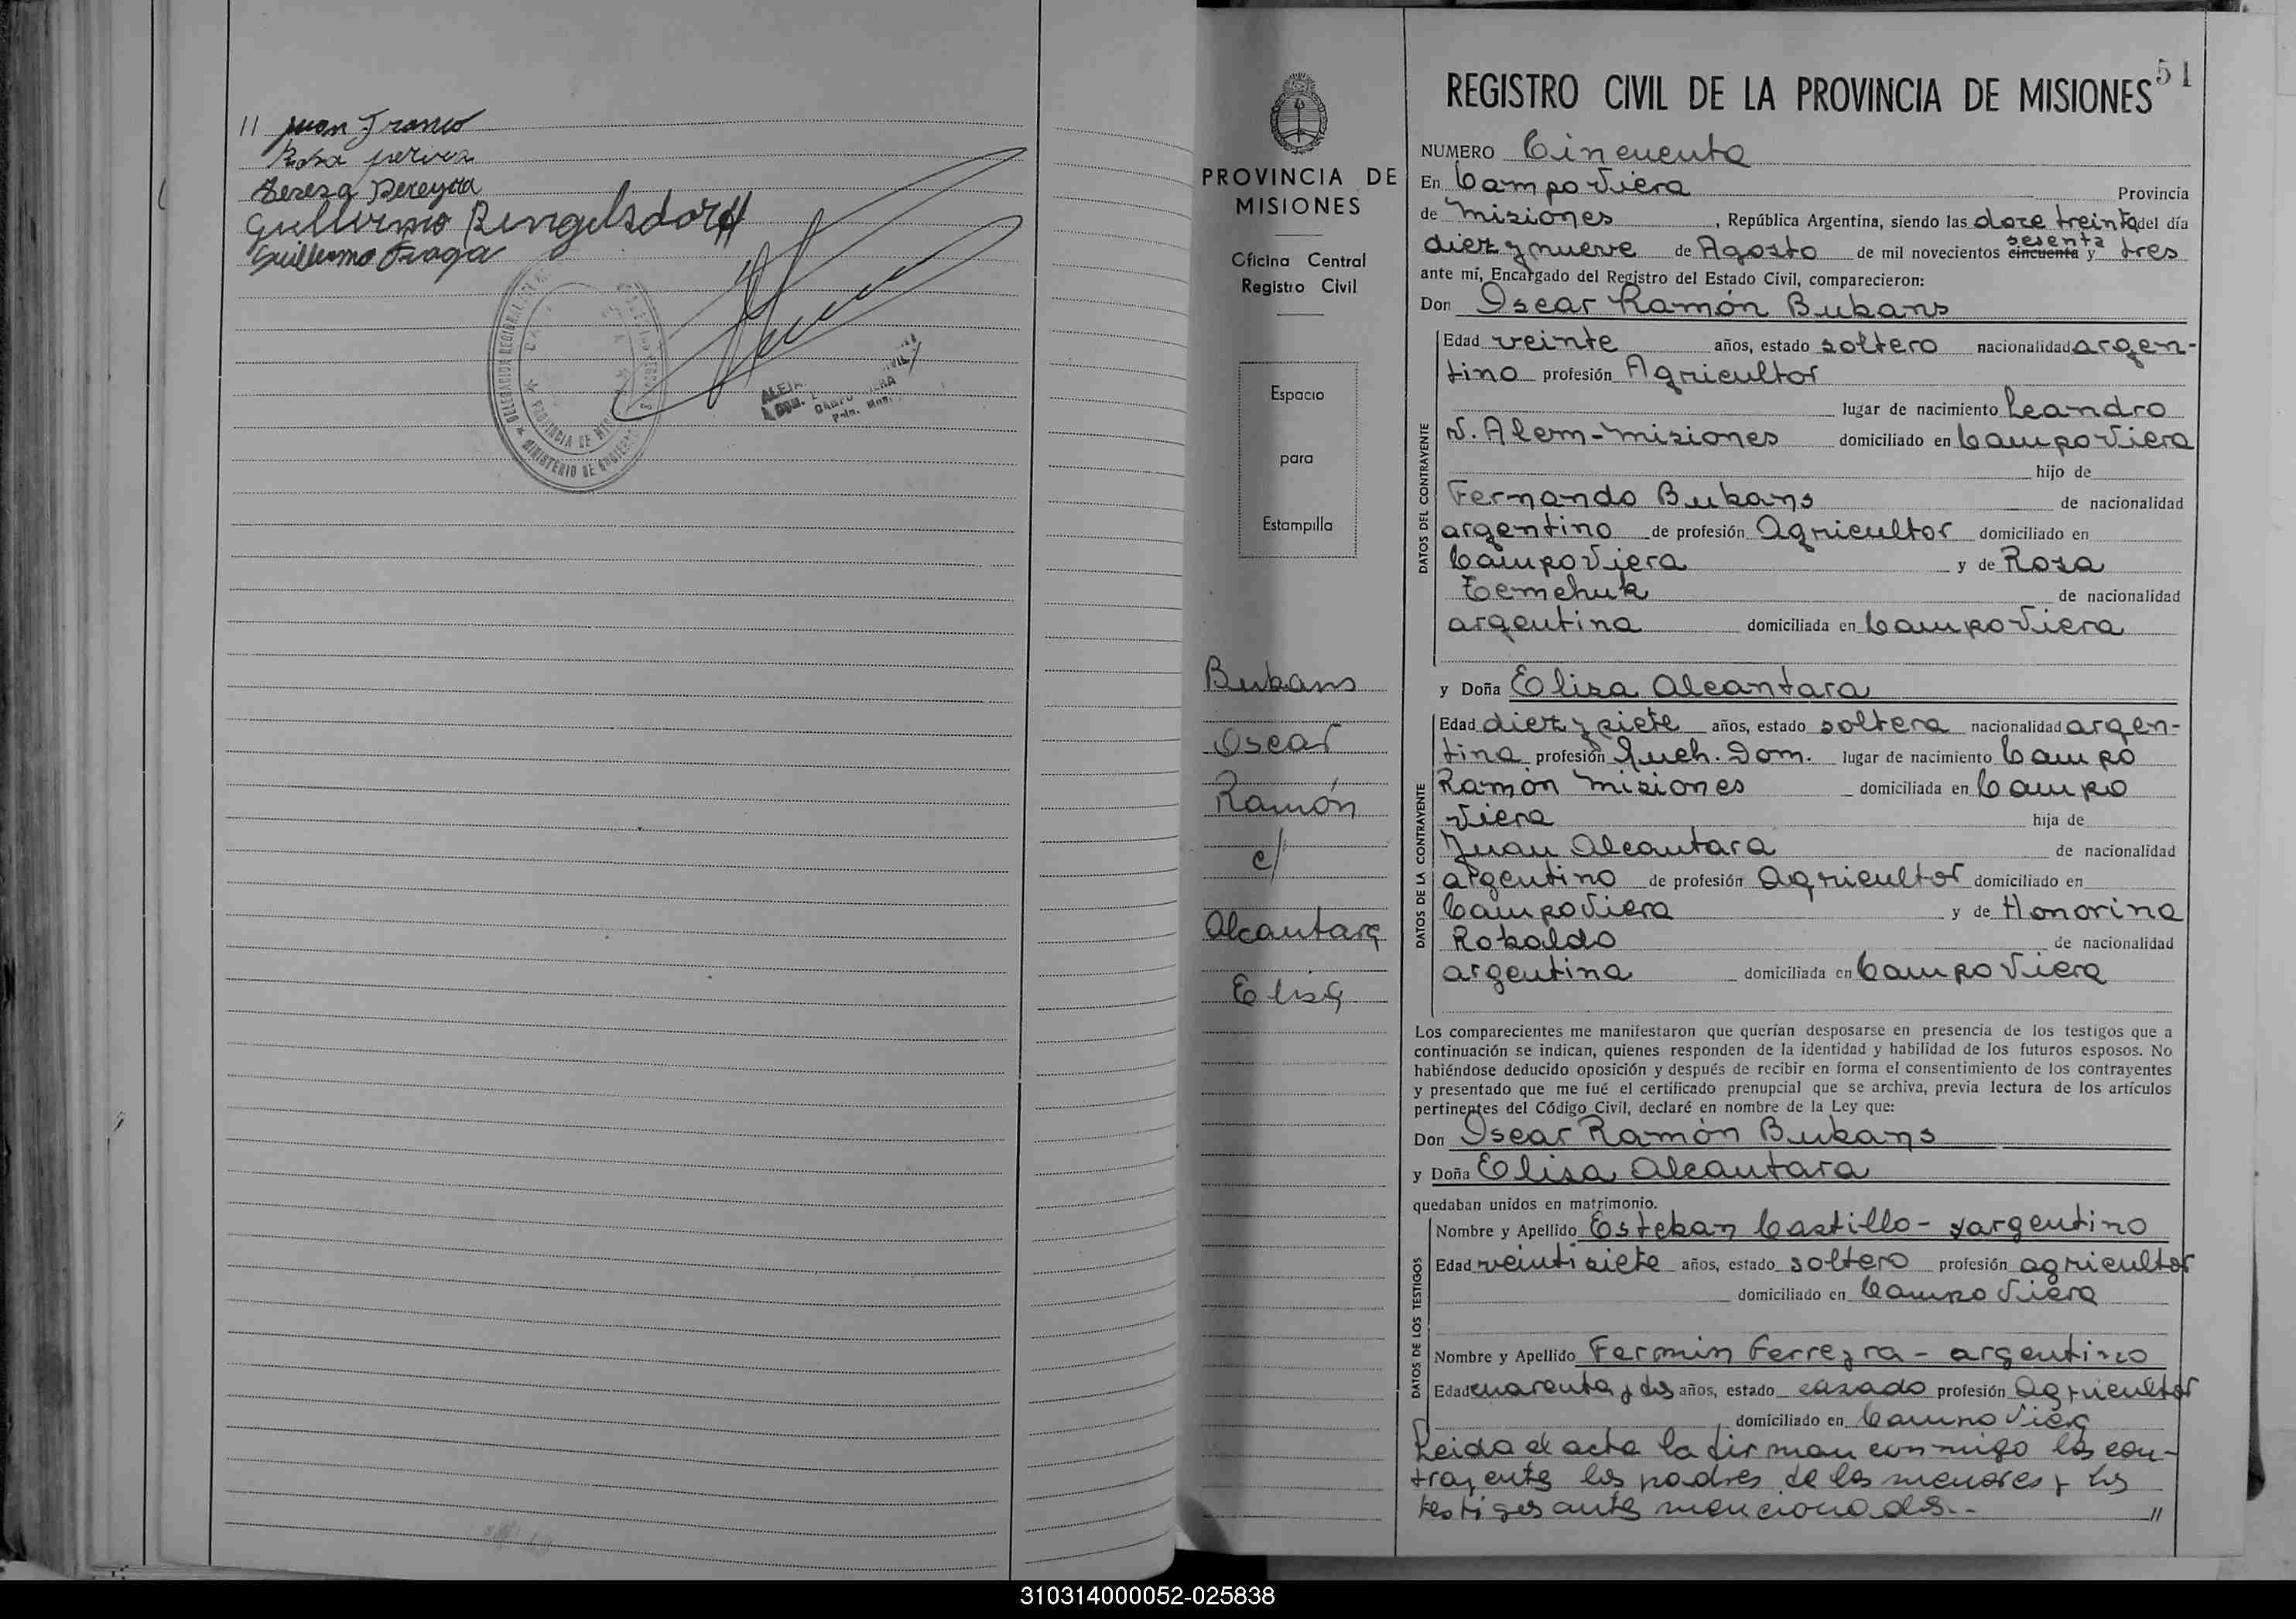 // Juan Franco
Rosa
Teresa Pereyra
Guillermo Ringelsdorff
Guillermo Fraga
MINISTERIO DE GOBIERNO
PROVINCIA DE MISIONES
51
REGISTRO CIVIL DE LA PROVINCIA DE MISIONES
PROVINCIA DE
MISIONES
Oficina Central
Registro Civil
Espacio
para
Estampilla
Bukans
Oscar
Ramón
c/
Alcantara
Elisa
NUMERO Cincuenta
En Campo Viera Provincia
de Misiones, República Argentina, siendo las doce treinta del día
diez y nueve de Agosto de mil novecientos cincuenta sesenta y tres
ante mí, Encargado del Registro del Estado Civil, comparecieron:
Don Oscar Ramón Bukans
DATOS DEL CONTRAYENTE
Edad veinte años, estado soltero nacionalidad argen-
tino profesión Agricultor
lugar de nacimiento Leandro
N. Alem - Misiones domiciliado en Campo Viera
hijo de
Fernando Bukans de nacionalidad
argentino de profesión Agricultor domiciliado en
Campo Viera y de Rosa
Temchuk de nacionalidad
argentina domiciliada en Campo Viera
y Doña Elisa Alcantara
DATOS DE LA CONTRAYENTE
Edad diez y siete años, estado soltera nacionalidad argen-
tina profesión Queh. Dom. lugar de nacimiento Campo
Ramón Misiones domiciliada en Campo
Viera hija de
Juan Alcantara de nacionalidad
argentino de profesión Agricultor domiciliado en
Campo Viera y de Honorina
Robaldo de nacionalidad
argentina domiciliada en Campo Viera
Los comparecientes me manifestaron que querían desposarse en presencia de los testigos que a
continuación se indican, quienes responden de la identidad y habilidad de los futuros esposos. No
habiéndose deducido oposición y después de recibir en forma el consentimiento de los contrayentes
y presentado que me fué el certificado prenupcial que se archiva, previa lectura de los artículos
pertinentes del Código Civil, declaré en nombre de la Ley que:
Don Oscar Ramón Bukans
y Doña Elisa Alcantara
quedaban unidos en matrimonio.
DATOS DE LOS TESTIGOS
Nombre y Apellido Esteban Castillo - argentino
Edad veintisiete años, estado soltero profesión agricultor
domiciliado en Campo Viera
Nombre y Apellido Fermin Ferreyra - argentino
Edad cuarenta y dos años, estado casado profesión Agricultor
domiciliado en Campo Viera
Leida el acta la firman conmigo los con-
trayentes los padres de los menores y los
testigos antes mencionados.- //
310314000052-025838